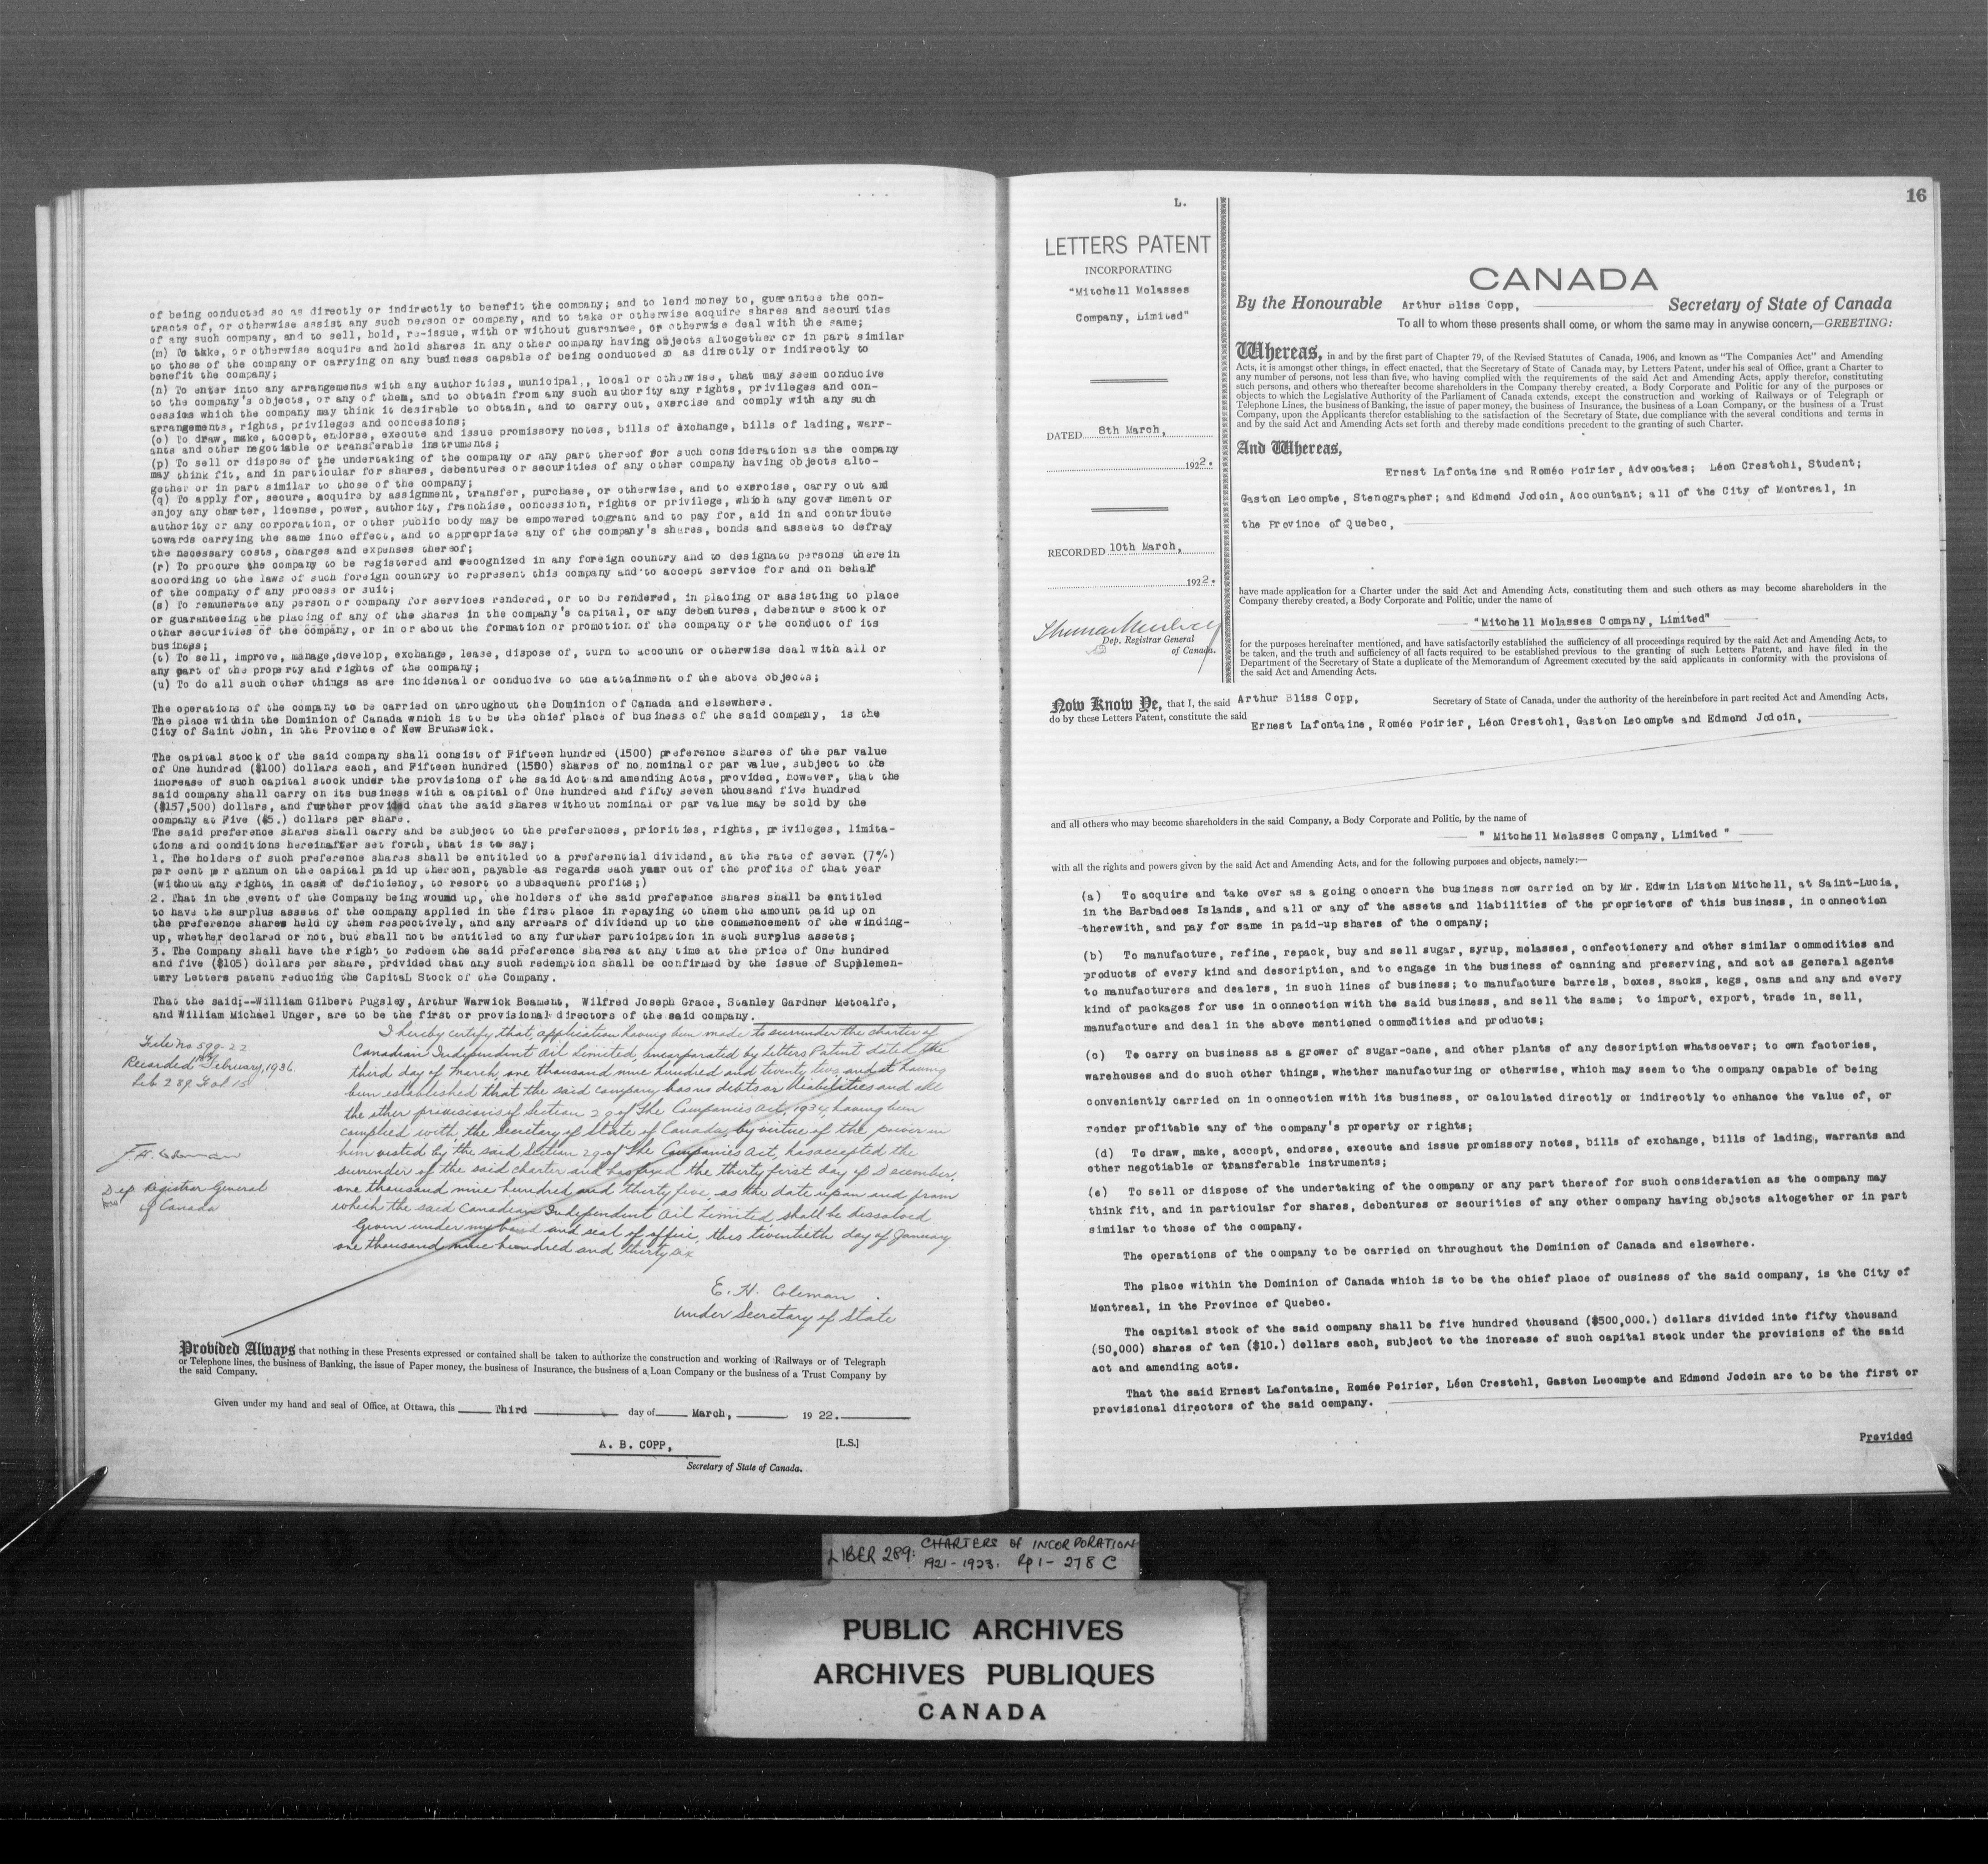 of being conducted so as directly or indirectly to benefit the company; and to lend money to, guarantee the con-
tracts of, or otherwise assist any such person or company, and to take or otherwise acquire shares and securities
of any such company, and to sell, hold, re-issue, with or without guarantee, or otherwise deal with the same;
(m) To take, or otherwise acquire and hold shares in any other company having objects altogether or in part similar
to those of the company or carrying on any business capable of being conducted so as directly or indirectly to
benefit the company;
(n) To enter into any arrangements with any authorities, municipal,, local or otherwise, that may seem conducive
to the company's objects, or any of them, and to obtain from any such authority any rights, privileges and con-
cessions which the company may think it desirable to obtain, and to carry out, exercise and comply with any such
arrangements, rights, privileges and concessions;
(o) To draw, make, accept, endorse, execute and issue promissory notes, bills of exchange, bills of lading, warr-
ants and other negotiable or transferable instruments;
(p) To sell or dispose of the undertaking of the company or any part thereof for such consideration as the company
may think fit, and in particular for shares, debentures or securities of any other company having objects alto-
gether or in part similar to those of the company;
(q) To apply for, secure, acquire by assignment, transfer, purchase, or otherwise, and to exercise, carry out and
enjoy any charter, license, power, authority, franchise, concession, rights or privilege, which any government or
authority or any corporation, or other public body may be empowered to grant and to pay for, aid in and contribute
towards carrying the same into effect, and to appropriate any of the company's shares, bonds and assets to defray
the necessary costs, charges and expenses thereof;
(r) To procure the company to be registered and recognized in any foreign country and to designate persons therein
according to the laws of such foreign country to represent this company and to accept service for and on behalf
of the company of any process or suit;
(s) To remunerate any person or company for services rendered, or to be rendered, in placing or assisting to place
or guaranteeing the placing of any of the shares in the company's capital, or any debentures, debenture stock or
other securities of the company, or in or about the formation or promotion of the company or the conduct of its
business;
(t) To sell, improve, manage,develop, exchange, lease, dispose of, turn to account or otherwise deal with all or
any part of the property and rights of the company;
(u) To do all such other things as are incidental or conducive to the attainment of the above objects;
The operations of the company to be carried on throughout the Dominion of Canada and elsewhere.
The place within the Dominion of Canada which is to be the chief place of business of the said company, is the
City of Saint John, in the Province of New Brunswick.
The capital stock of the said company shall consist of Fifteen hundred (1500) preference shares of the par value
of One hundred ($100) dollars each, and Fifteen hundred (1500) shares of no nominal or par value, subject to the
increase of such capital stock under the provisions of the said Act and amending Acts, provided, however, that the
said company shall carry on its business with a capital of One hundred and fifty seven thousand five hundred
($157,500) dollars, and further provided that the said shares without nominal or par value may be sold by the
company at Five ($5.) dollars per share.
The said preference shares shall carry and be subject to the preferences, priorities, rights, privileges, limita-
tions and conditions hereinafter set forth, that is to say;
1. The holders of such preference shares shall be entitled to a preferential dividend, at the rate of seven (7%)
per cent per annum on the capital paid up thereon, payable as regards each year out of the profits of that year
(without any rights, in case of deficiency, to resort to subsequent profits;)
2. That in the event of the Company being wound up, the holders of the said preference shares shall be entitled
to have the surplus assets of the company applied in the first place in repaying to them the amount paid up on
the preference shares held by them respectively, and any arrears of dividend up to the commencement of the winding-
up, whether declared or not, but shall not be entitled to any further participation in such surplus assets;
3. The Company shall have the right to redeem the said preference shares at any time at the price of One hundred
and five ($105) dollars per share, provided that any such redemption shall be confirmed by the issue of Supplemen-
tary Letters patent reducing the Capital Stock of the Company.
That the said;--William Gilbert Pugsley, Arthur Warwick Beament, Wilfred Joseph Grace, Stanley Gardner Metcalfe,
and William Michael Unger, are to be the first or provisional directors of the said company.
File No 599-22
Recorded February, 1936.
Lib. 289 Fol. 15
Dep Registrar General
of Canada
I hereby certify that, application having been made to surrender the charter of
Canadian Independent Oil Limited, incorporated by Letters Patent dated the
third day of March, one thousand nine hundred and twenty two, and it having
been established that the said company has no debts or liabilities and all
the other provisions of Section 29 of The Companies Act, 1934, having been
complied with, the Secretary of State of Canada, by virtue of the power in
him vested by the said Section 29 of The Companies Act, has accepted the
surrender of the said charter and has fixed the thirty first day of December,
one thousand nine hundred and thirty five, as the date upon and from
which the said Canadian Independent Oil Limited, shall be dissolved.
Given under my hand and seal of office, this twentieth day of January
one thousand nine hundred and thirty six
E. H. Coleman
Under Secretary of State
Provided Always that nothing in these Presents expressed or contained shall be taken to authorize the construction and working of Railways or of Telegraph
or Telephone lines, the business of Banking, the issue of Paper money, the business of Insurance, the business of a Loan Company or the business of a Trust Company by
the said Company.
Given under my hand and seal of Office, at Ottawa, this Third day of March, 1922.
A. B. COPP, [L.S.]
Secretary of State of Canada.
16
L.
LETTERS PATENT
INCORPORATING
"Mitchell Molasses
Company, Limited"
DATED 8th March,
1922.
RECORDED 10th March,
1922.
Dep. Registrar General
of Canada.
CANADA
By the Honourable Arthur Bliss Copp, Secretary of State of Canada
To all to whom these presents shall come, or whom the same may in anywise concern,—GREETING:
Whereas, in and by the first part of Chapter 79, of the Revised Statutes of Canada, 1906, and known as "The Companies Act" and Amending
Acts, it is amongst other things, in effect enacted, that the Secretary of State of Canada may, by Letters Patent, under his seal of Office, grant a Charter to
any number of persons, not less than five, who having complied with the requirements of the said Act and Amending Acts, apply therefor, constituting
such persons, and others who thereafter become shareholders in the Company thereby created, a Body Corporate and Politic for any of the purposes or
objects to which the Legislative Authority of the Parliament of Canada extends, except the construction and working of Railways or of Telegraph or
Telephone Lines, the business of Banking, the issue of paper money, the business of Insurance, the business of a Loan Company, or the business of a Trust
Company, upon the Applicants therefor establishing to the satisfaction of the Secretary of State, due compliance with the several conditions and terms in
and by the said Act and Amending Acts set forth and thereby made conditions precedent to the granting of such Charter.
And Whereas,
Ernest Lafontaine and Roméo Poirier, Advocates; Léon Crestohl, Student;
Gaston Lecompte, Stenographer; and Edmond Jodoin, Accountant; all of the City of Montreal, in
the Province of Quebec,
have made application for a Charter under the said Act and Amending Acts, constituting them and such others as may become shareholders in the
Company thereby created, a Body Corporate and Politic, under the name of
"Mitchell Molasses Company, Limited"
for the purposes hereinafter mentioned, and have satisfactorily established the sufficiency of all proceedings required by the said Act and Amending Acts, to
be taken, and the truth and sufficiency of all facts required to be established previous to the granting of such Letters Patent, and have filed in the
Department of the Secretary of State a duplicate of the Memorandum of Agreement executed by the said applicants in conformity with the provisions of
the said Act and Amending Acts.
Now Know Ye, that I, the said Arthur Bliss Copp, Secretary of State of Canada, under the authority of the hereinbefore in part recited Act and Amending Acts,
do by these Letters Patent, constitute the said Ernest Lafontaine, Roméo Poirier, Léon Crestohl, Gaston Lecompte and Edmond Jodoin,
and all others who may become shareholders in the said Company, a Body Corporate and Politic, by the name of
" Mitchell Molasses Company, Limited "
with all the rights and powers given by the said Act and Amending Acts, and for the following purposes and objects, namely:—
(a) To acquire and take over as a going concern the business now carried on by Mr. Edwin Liston Mitchell, at Saint-Lucia,
in the Barbadoes Islands, and all or any of the assets and liabilities of the proprietors of this business, in connection
therewith, and pay for same in paid-up shares of the company;
(b) To manufacture, refine, repack, buy and sell sugar, syrup, molasses, confectionery and other similar commodities and
products of every kind and description, and to engage in the business of canning and preserving, and act as general agents
to manufacturers and dealers, in such lines of business; to manufacture barrels, boxes, sacks, kegs, cans and any and every
kind of packages for use in connection with the said business, and sell the same; to import, export, trade in, sell,
manufacture and deal in the above mentioned commodities and products;
(c) To carry on business as a grower of sugar-cane, and other plants of any description whatsoever; to own factories,
warehouses and do such other things, whether manufacturing or otherwise, which may seem to the company capable of being
conveniently carried on in connection with its business, or calculated directly or indirectly to enhance the value of, or
render profitable any of the company's property or rights;
(d) To draw, make, accept, endorse, execute and issue promissory notes, bills of exchange, bills of lading, warrants and
other negotiable or transferable instruments;
(e) To sell or dispose of the undertaking of the company or any part thereof for such consideration as the company may
think fit, and in particular for shares, debentures or securities of any other company having objects altogether or in part
similar to those of the company.
The operations of the company to be carried on throughout the Dominion of Canada and elsewhere.
The place within the Dominion of Canada which is to be the chief place of business of the said company, is the City of
Montreal, in the Province of Quebec.
The capital stock of the said company shall be five hundred thousand ($500,000.) dollars divided into fifty thousand
(50,000) shares of ten ($10.) dollars each, subject to the increase of such capital stock under the provisions of the said
act and amending acts.
That the said Ernest Lafontaine, Romée Poirier, Léon Crestohl, Gaston Lecompte and Edmond Jodoin are to be the first or
provisional directors of the said company.
Provided
LIBER 289: CHARTERS OF INCORPORATION
1921-1923. Pp 1-278 C
PUBLIC ARCHIVES
ARCHIVES PUBLIQUES
CANADA